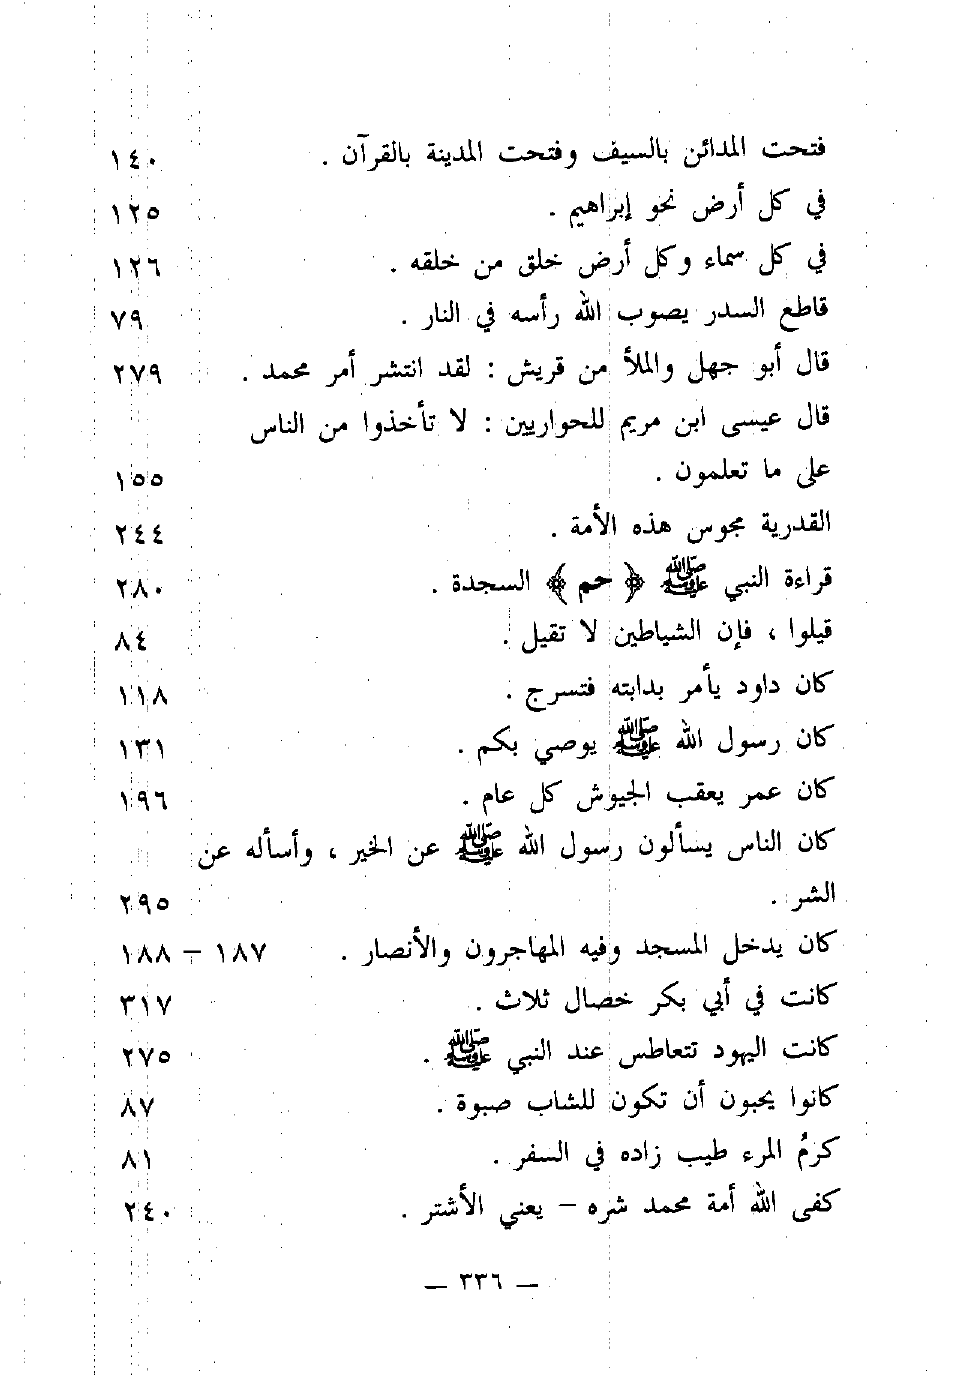 فتحت المدائن بالسيف وفتحت المدينة بالقرآن . ١٤٠
في كل أرض نحو إبراهيم . ١٢٥
في كل سماء وكل أرض خلق من خلقه . ١٢٦
قاطع السدر يصوب الله رأسه في النار . ٧٩
قال أبو جهل والملأ من قريش : لقد انتشر أمر محمد . ٢٧٩
قال عيسى ابن مريم للحواريين : لا تأخذوا من الناس
على ما تعلمون . ١٥٥
القدرية مجوس هذه الأمة . ٢٤٤
قراءة النبي ﷺ ﴿ حم ﴾ السجدة . ٢٨٠
قيلوا ، فإن الشياطين لا تقيل . ٨٤
كان داود يأمر بدابته فتسرج . ١١٨
كان رسول الله ﷺ يوصي بكم . ١٣١
كان عمر يعقب الجيوش كل عام . ١٩٦
كان الناس يسألون رسول الله ﷺ عن الخير ، وأسأله عن
الشر . ٢٩٥
كان يدخل المسجد وفيه المهاجرون والأنصار . ١٨٧ – ١٨٨
كانت في أبي بكر خصال ثلاث . ٣١٧
كانت اليهود تتعاطس عند النبي ﷺ . ٢٧٥
كانوا يحبون أن تكون للشاب صبوة . ٨٧
كرمُ المرء طيب زاده في السفر . ٨١
كفى الله أمة محمد شره – يعني الأشتر . ٢٤٠
— ٣٣٦ —